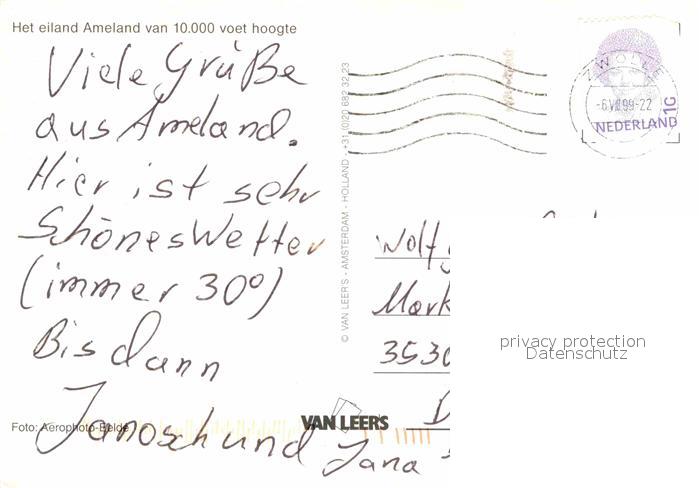 Het eiland Ameland van 10.000 voet hoogte
Viele Grüße
aus Ameland.
Hier ist sehr
Schönes Wetter
(immer 30°)
Bis dann
Janosch und Jana
Foto: Aerophoto-Eelde
VAN LEERS
© VAN LEER'S - AMSTERDAM - HOLLAND - +31 (0)20 682 32 23
ZWOLLE
-6.VII.99-22
NEDERLAND
1G
Wolf
Mark
3530
D
privacy protection
Datenschutz